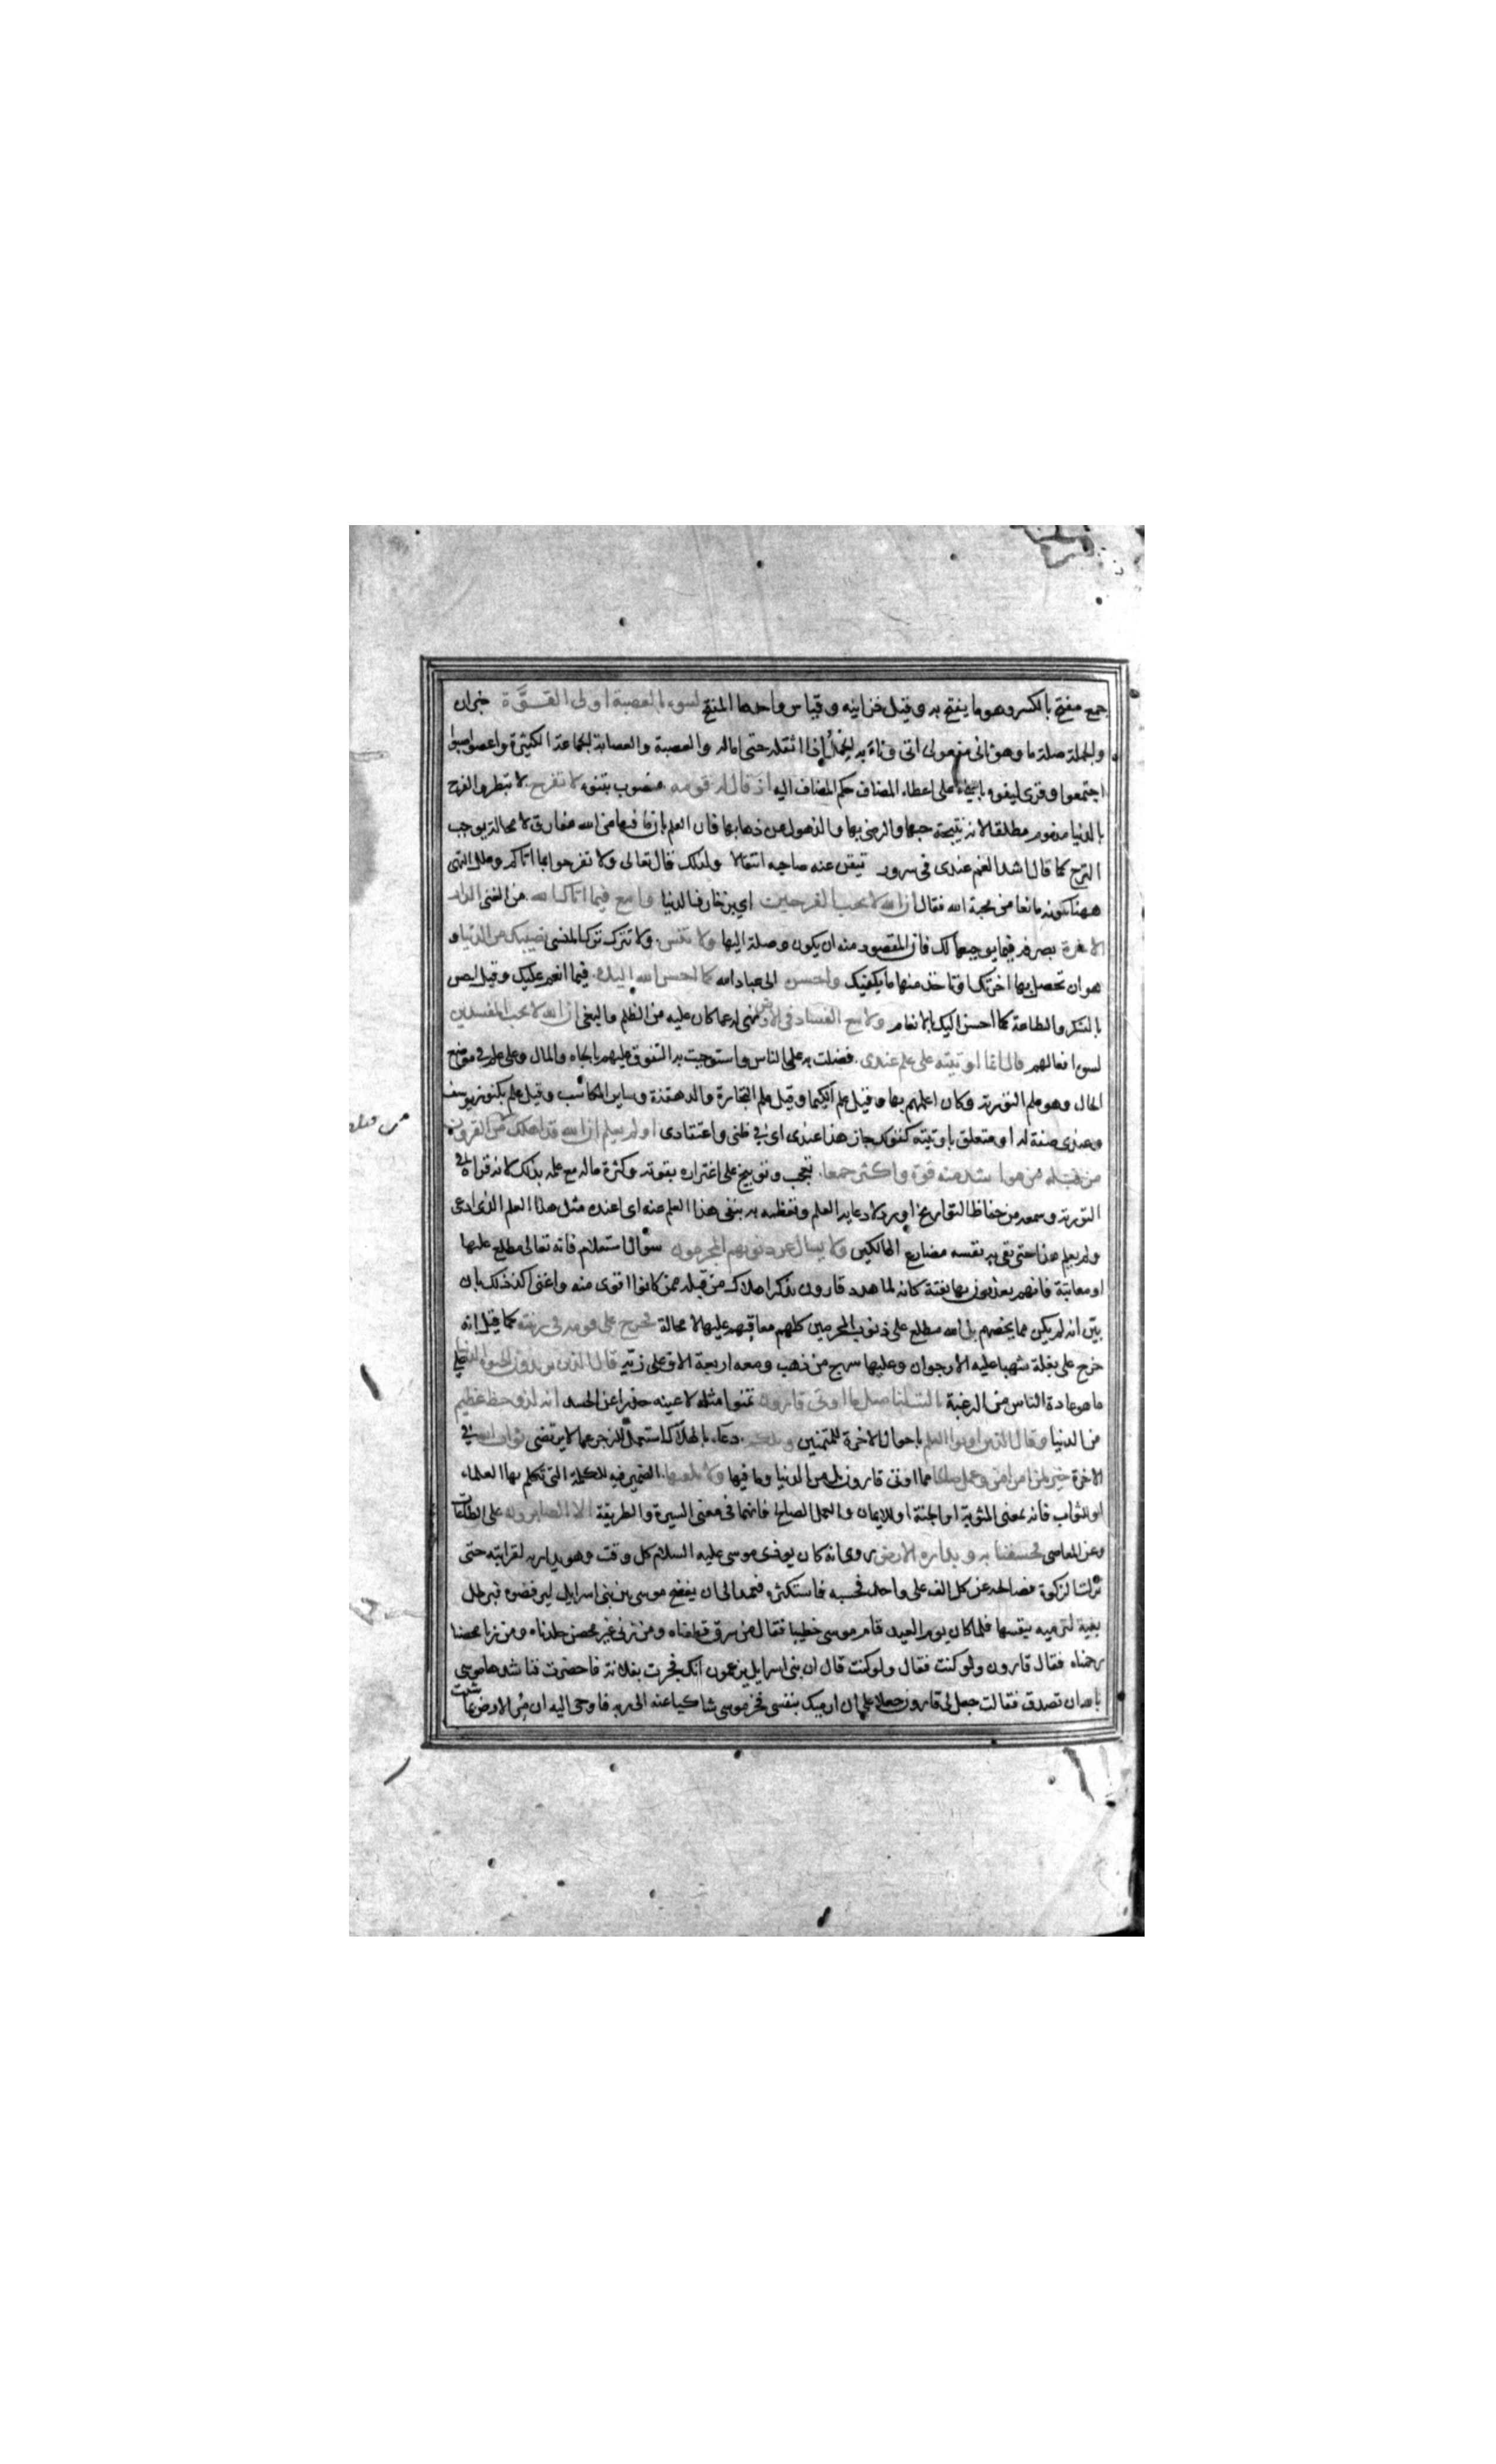 جمع مفتح بالكسر وهو ما يفتح به وقيل خزاينه وقياس واحدها المفتح لتنوء بالعصبة اولى القوّة خبر ان
والجملة صلة ما وهو ثانى مفعولى اتى وناء به الحمل اذا اثقله حتى اماله والعصبة والعصابة الجماعة الكثيرة واعصوصبوا
اجتمعوا وقرئ لينوء بالياء على اعطاء المضاف حكم المضاف اليه اذ قال له قومه منصوب بتنوء لا تفرح لا تبطر والفرح
بالدنيا مذموم مطلقا لانه نتيجة حبها والرضى بها والذهول عن ذهابها فان العلم بان ما فيها من الله مفارق لا محالة يوجب
الترح كما قال اشد الغم عندى فى سرور تيقن عنه صاحبه انتقالا ولذلك قال تعالى ولا تفرحوا بما اتاكم وعلل النهى
ههنا بكونه مانعا من محبة الله فقال ان الله لا يحب الفرحين اي بزخارف الدنيا وابتغ فيما اتاك الله من الغنى الدار
الاخرة بصرفه فيما يوجبها لك فان المقصود منه ان يكون وصلة اليها ولا تنس ولا تترك ترك المنسى نصيبك من الدنيا و
هو ان تحصل بها اخرتك او تاخذ منها ما يكفيك واحسن الى عباد الله كما احسن الله اليك فيما انعم عليك وقيل احسن
بالشكر والطاعة كما احسن اليك بالانعام ولا تبغ الفساد فى الارض نهى له عما كان عليه من الظلم والبغى ان الله لا يحب المفسدين
لسوء افعالهم قال انما اوتيته على علم عندى فضلت به على الناس واستوجبت به التفوق عليهم بالجاه والمال وعلى علم فى موضع
الحال وهو علم التورية وكان اعلمهم بها وقيل علم الكيميا وقيل علم التجارة والدهقنة وساير المكاسب وقيل علم بكنوز يوسف
وعندى صفة له او متعلق باوتيته كقولك جاز هذا عندى اى فى ظنى واعتقادى اولم يعلم ان الله قد اهلك من القرون
من قبله من هو اشد منه قوة واكثر جمعا تعجب وتوبيخ على اغتراره بقوته وكثرة ماله مع علمه بذلك لانه قراه فى
التورية وسمعه من حفاظ التواريخ او رد لادعايه العلم وتعظمه به بنفى هذا العلم عنه اى اعنده مثل هذا العلم الذى ادعى
ولم يعلم هذا حتى يقى به نفسه مصارع الهالكين ولا يسال عن ذنوبهم المجرمون سؤال استعلام فانه تعالى مطلع عليها
او معاتبة فانهم يعذبون بها بغتة كانه لما هدد قارون بذكر اهلاك من قبله ممن كانوا اقوى منه واغنى اكد ذلك بان
بين انه لم يكن مما يخصهم بل الله مطلع على ذنوب المجرمين كلهم معاقبهم عليها لا محالة فخرج على قومه فى زينته كما قيل انه
خرج على بغلة شهبا عليه الارجوان وعليها سرج من ذهب ومعه اربعة الاف على زيه قال الذين يريدون الحيوة الدنيا على
ما هو عادة الناس من الرغبة يا ليت لنا مثل ما اوتى قارون تمنوا مثله لا عينه حذرا عن الحسد انه لذو حظ عظيم
من الدنيا وقال الذين اوتوا العلم باحوال الاخرة للمتمنين ويلكم دعاء بالهلاك استعمل للزجر عما لا يرتضى ثواب الله فى
الاخرة خير لمن امن وعمل صالحا مما اوتى قارون بل من الدنيا وما فيها ولا يلقيها الضمير فيه للكلمة التى تكلم بها العلماء
او للثواب فانه بمعنى المثوبة او الجنة او للايمان والعمل الصالح فانهما فى معنى السيرة والطريقة الا الصابرون على الطاعات
وعن المعاصى فخسفنا به وبداره الارض روى انه كان يوذى موسى عليه السلام كل وقت وهو يداريه لقرابته حتى
نزلت الزكوة فصالحه عن كل الف على واحد فحسبه فاستكثره فعمد الى ان يفضح موسى بين بنى اسرايل ليرفضوه فبرطل
بغية لترميه بنفسها فلما كان يوم العيد قام موسى خطيبا فقال من سرق قطعناه ومن زنى غير محصن جلدناه ومن زنا محصنا
رجمناه فقال قارون ولو كنت فقال ولو كنت قال ان بنى اسرايل يزعمون انك فجرت بفلانة فاحضرت فناشدها موسى
بالله ان تصدق فقالت جعل لى قارون جعلا على ان ارميك بنفسى فخر موسى شاكيا عنه الى ربه فاوحى اليه ان مر الارض بما شئت